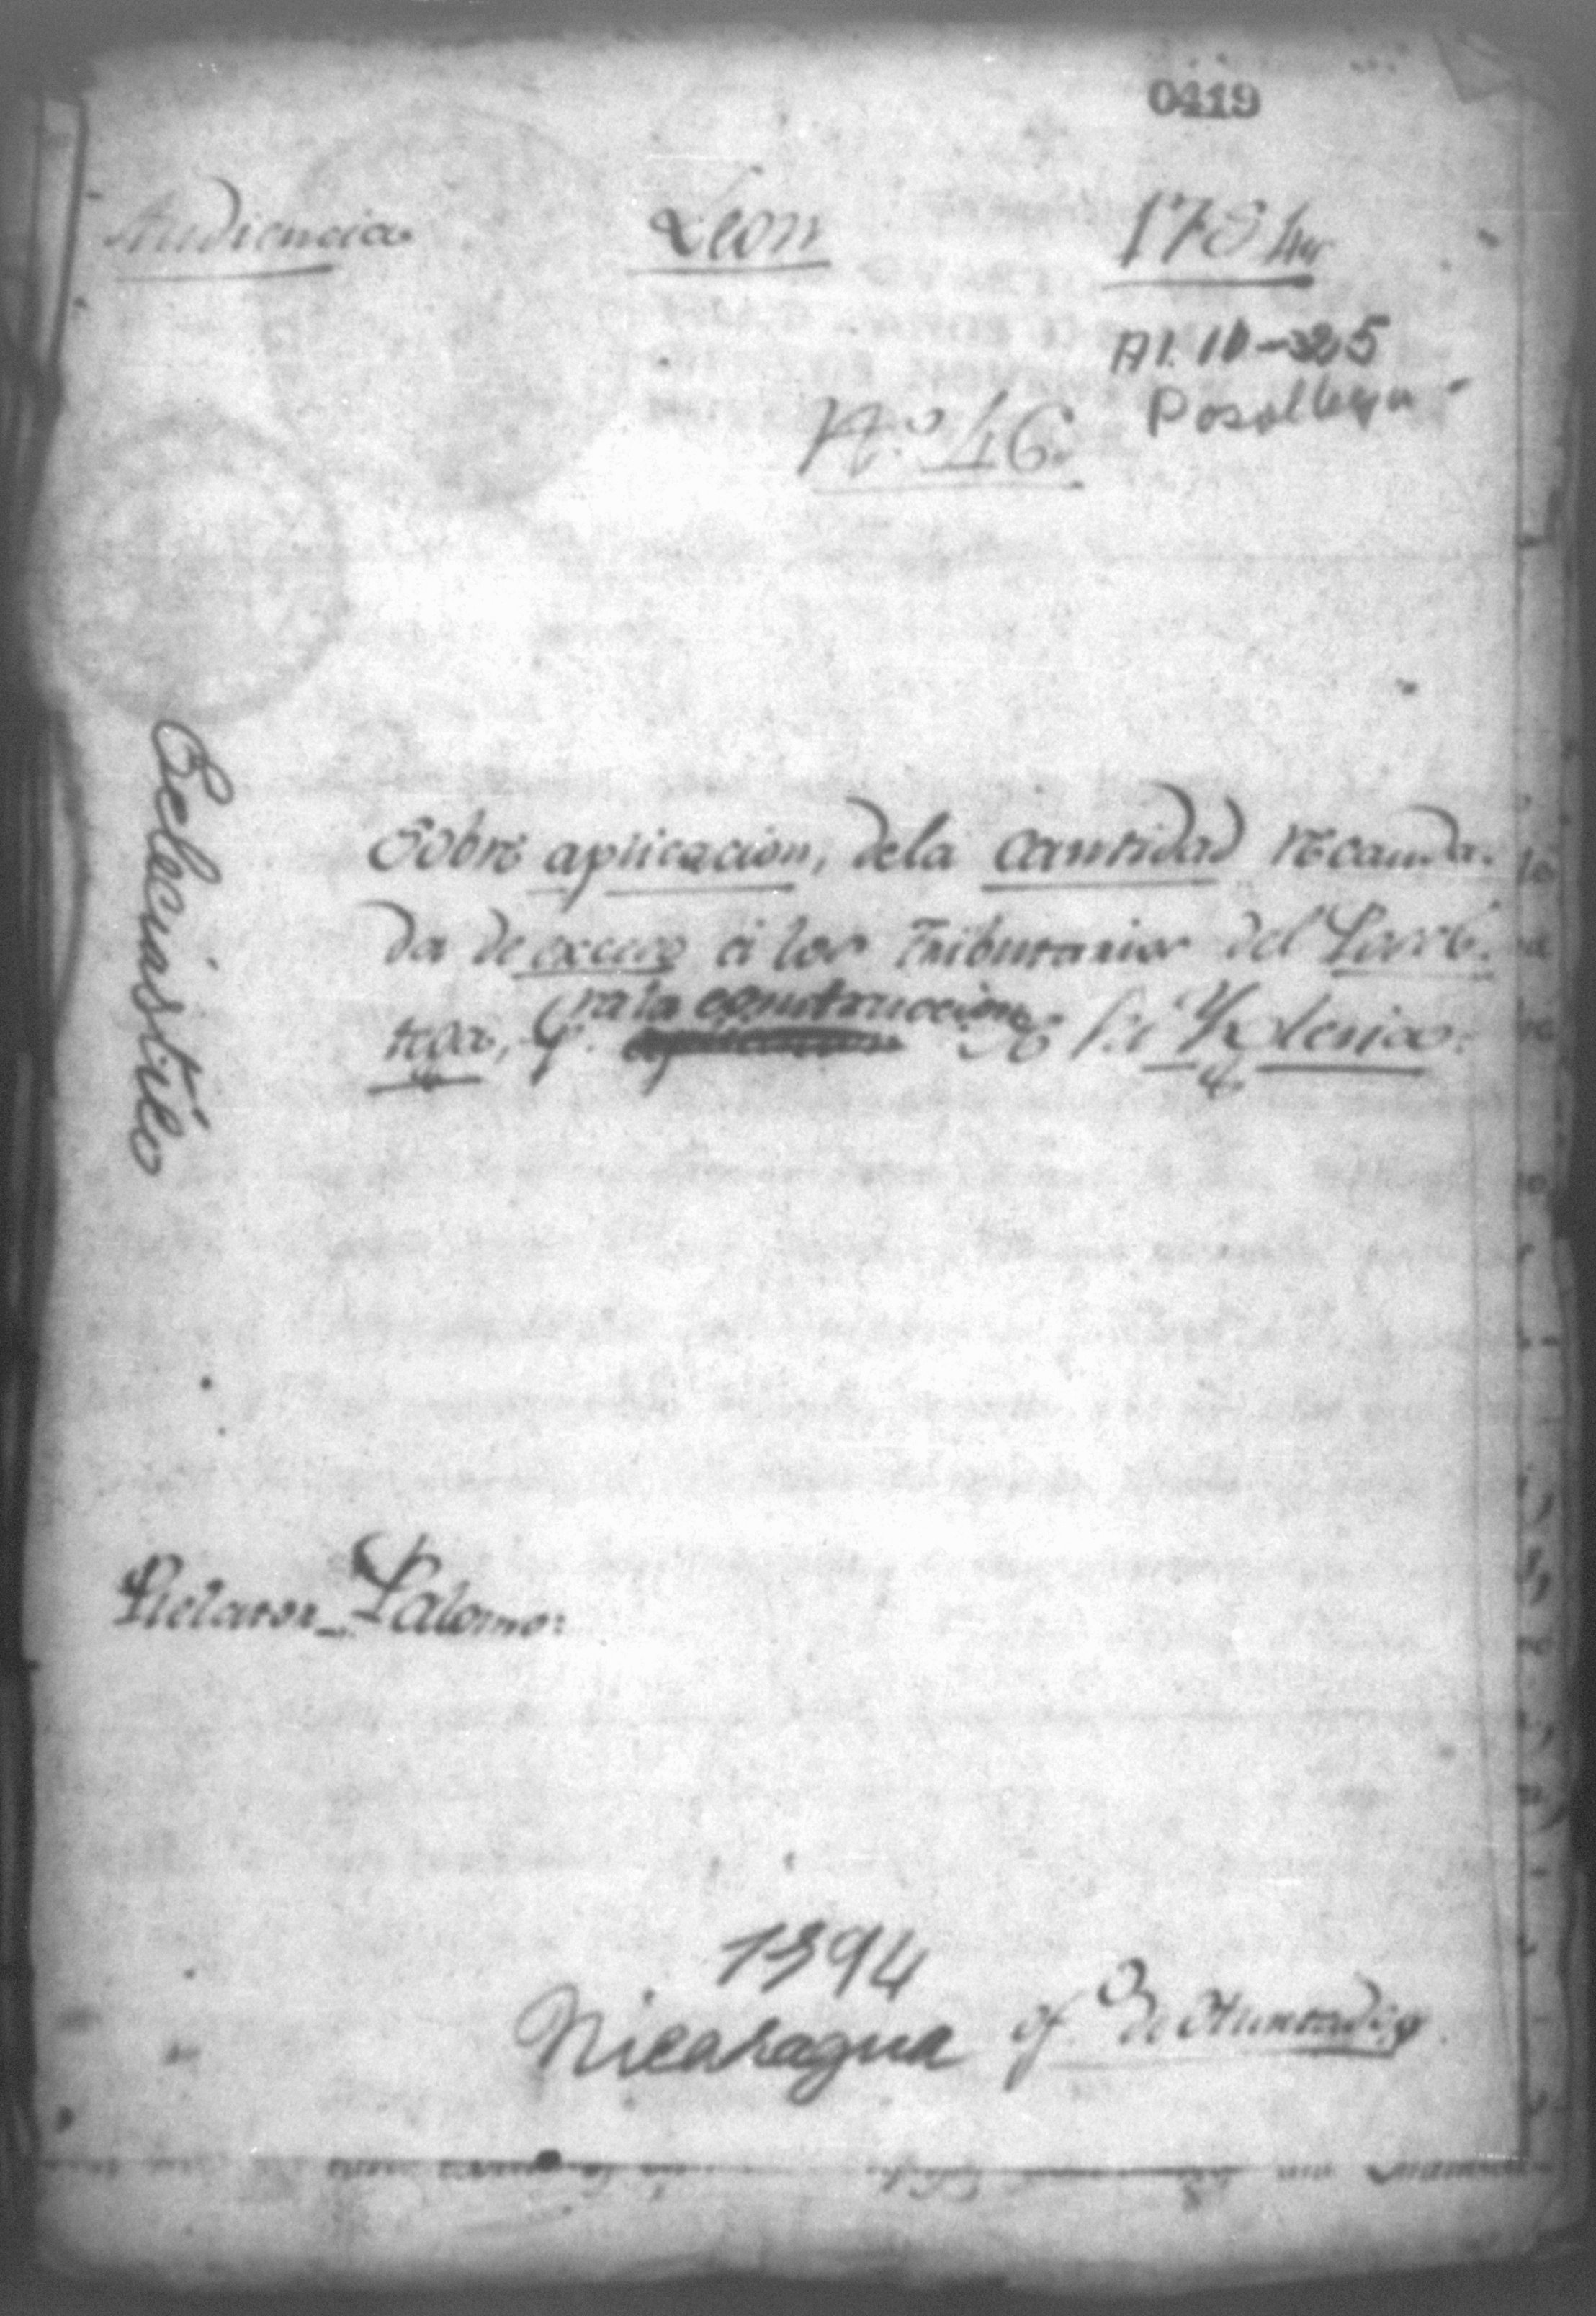 0419
Audiencia Leon 1784
A1.10-325
Posoltega
N.º 46.
Eclesiastico
Sobre aplicacion, dela Cantidad recauda-
da de exceso á los Tributarios del Posol-
tega, pª. la construccion de su Yglesia.
Relator Palomo:
1394
Nicaragua of.º de